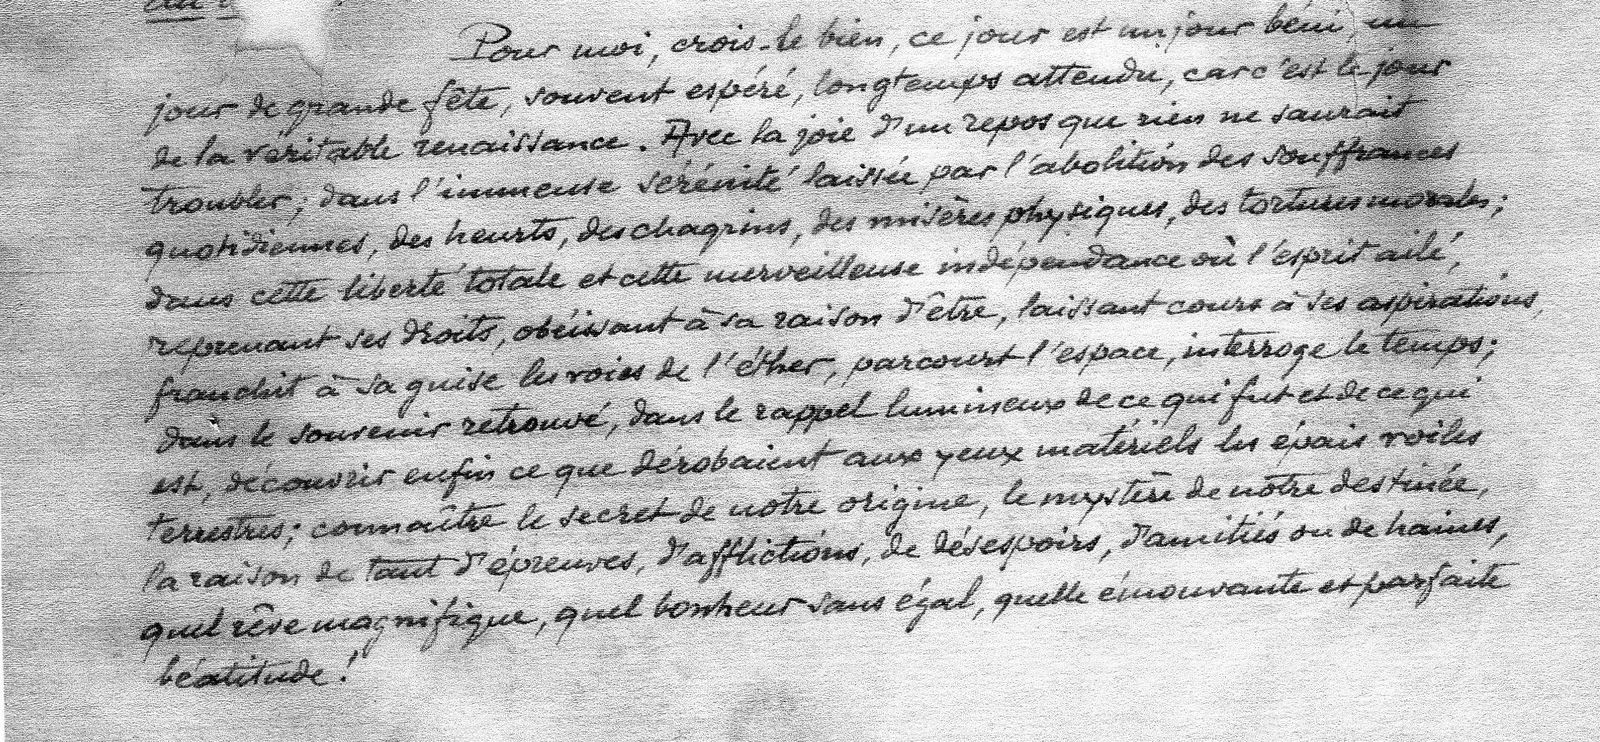 Pour moi, crois-le bien, ce jour est un jour béni, un
jour de grande fête, souvent espéré, longtemps attendu, car c'est le jour
de la véritable renaissance. Avec la joie d'un repos que rien ne saurait
troubler; dans l'immense sérénité laissée par l'abolition des souffrances
quotidiennes, des heurts, des chagrins, des misères physiques, des tortures morales;
dans cette liberté totale et cette merveilleuse indépendance où l'esprit ailé,
reprenant ses droits, obéissant à sa raison d'être, laissant cours à ses aspirations,
franchit à sa guise les voies de l'éther, parcourt l'espace, interroge le temps;
dans le souvenir retrouvé, dans le rappel lumineux de ce qui fut et de ce qui
est, découvrir enfin ce que dérobaient aux yeux matériels les épais voiles
terrestres; connaître le secret de notre origine, le mystère de notre destinée,
la raison de tant d'épreuves, d'afflictions, de désespoirs, d'amitiés ou de haines,
quel rêve magnifique, quel bonheur sans égal, quelle émouvante et parfaite
béatitude!